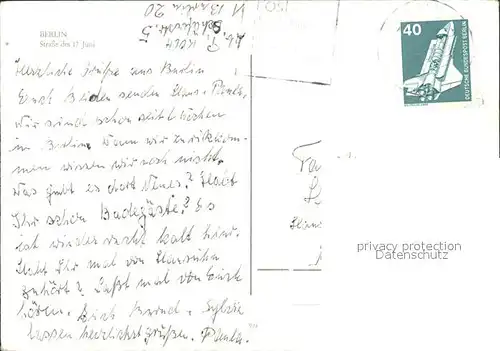 BERLIN
Straße des 17. Juni
Herzliche Grüße aus Berlin
Euch Beiden senden Hans + Paula.
Wir sind schon seit
in Berlin. Wann wir zurückkom-
men wissen wir noch nicht.
Was gibt es dort Neues? Habt
Ihr schon Badegäste? Es
ist wieder recht kalt hier.
Habt Ihr mal von
gehört? Laßt mal von Euch
hören. Auch Bernd + Sylvia
lassen herzlichst grüßen. Paula.
Abs.
1 Berlin 20
40
DEUTSCHE BUNDESPOST BERLIN
privacy protection
Datenschutz